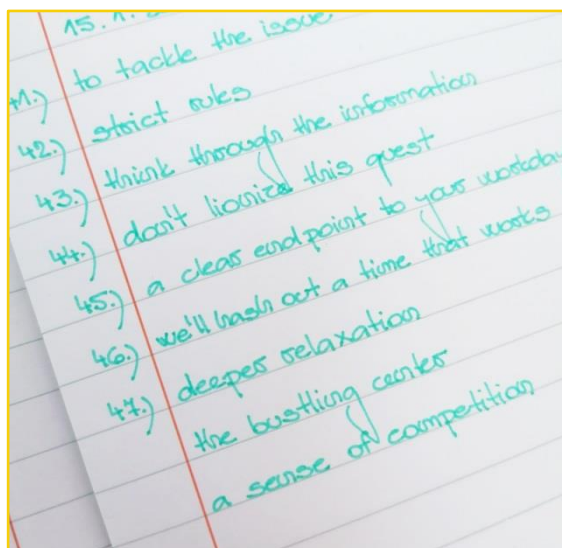 15.1.
41.) to tackle the issue
42.) strict rules
43.) think through the information
44.) don't this quest
45.) a clear endpoint to your workday
46.) we'll hash out a time that works
47.) deeper relaxation
the bustling center
a sense of competition